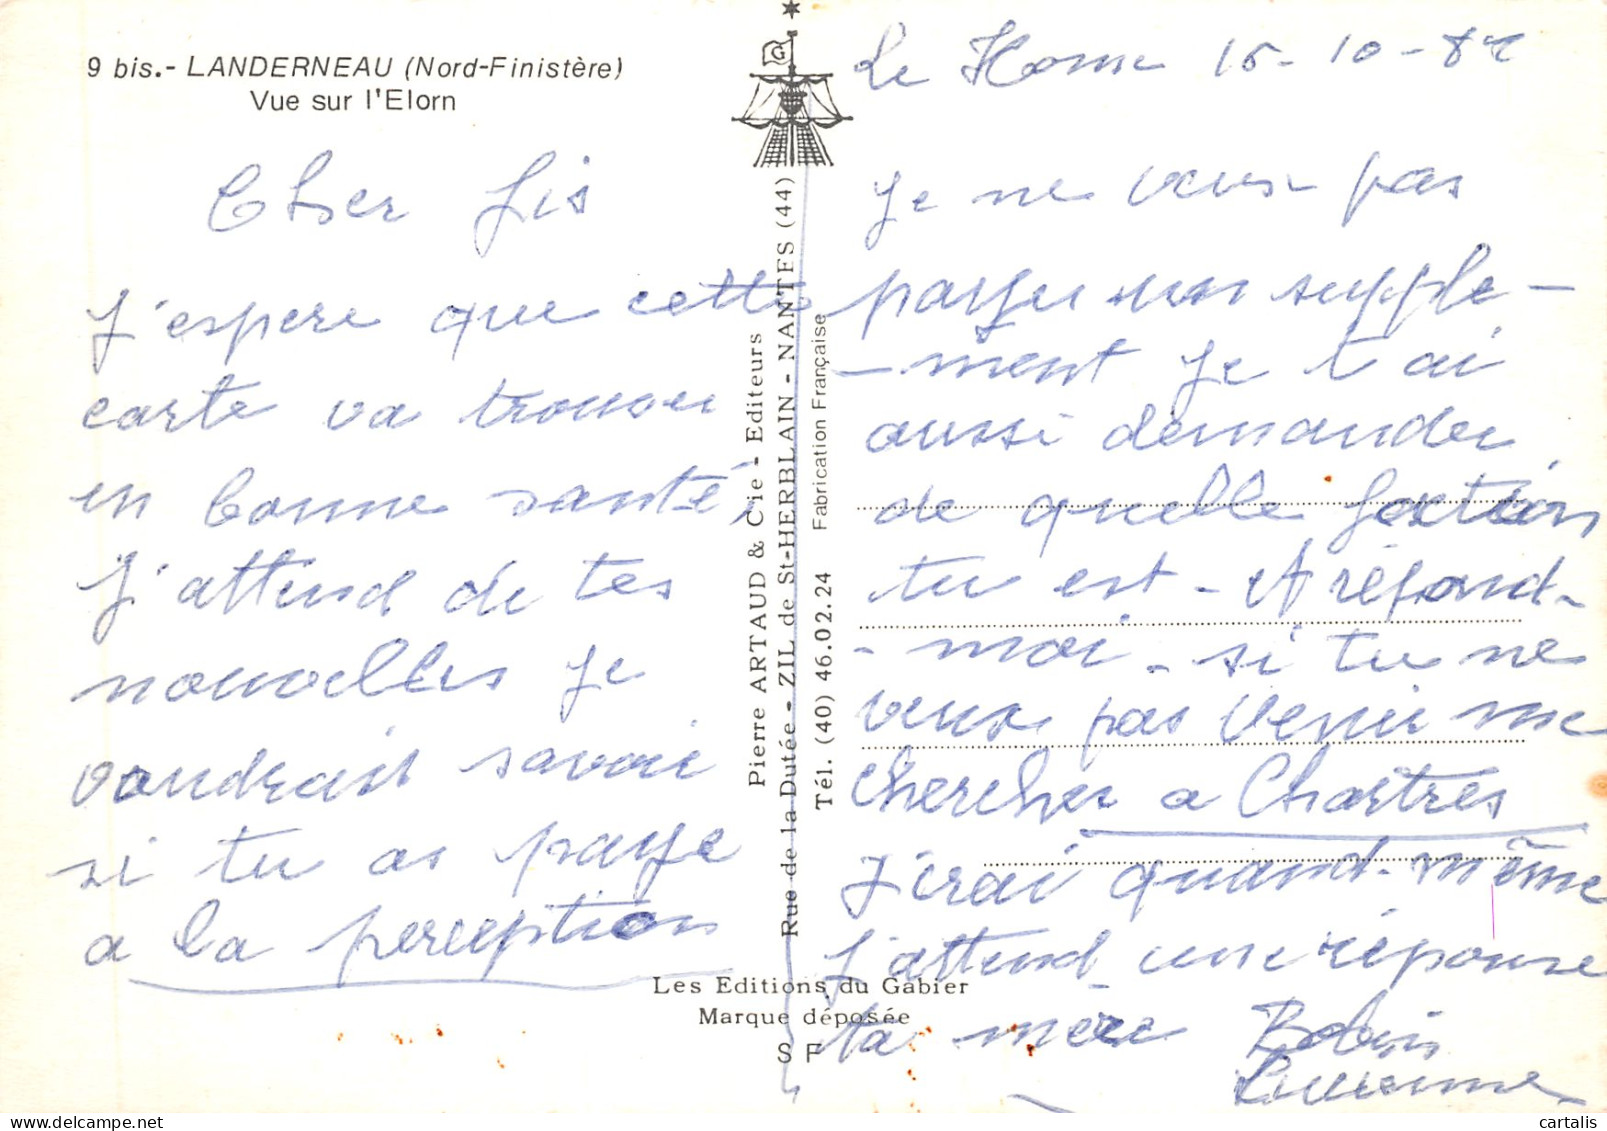 9 bis.- LANDERNEAU (Nord-Finistère)
Vue sur l'Elorn
Cher fis
J'espere que cette
carte va trouver
en bonne santé,
J'attend de tes
nouvelles je
voudrais savoir
si tu as paye
a la perception
Pierre ARTAUD & Cie - Editeurs
Rue de la Dutée - ZIL de St-HERBLAIN - NANTES (44)
Tél. (40) 46.02.24 Fabrication Française
Les Editions du Gabier
Marque déposée
S F
G
Le Home 15-10-82
Je ne veus pas
payer un supple-
-ment je t'ai
aussi demander
de quelle faction
tu est - et répond-
-moi - si tu ne
veux pas venir me
chercher a Chartres
J'irai quand-même
J'attend une réponse
ta mere
cartalis